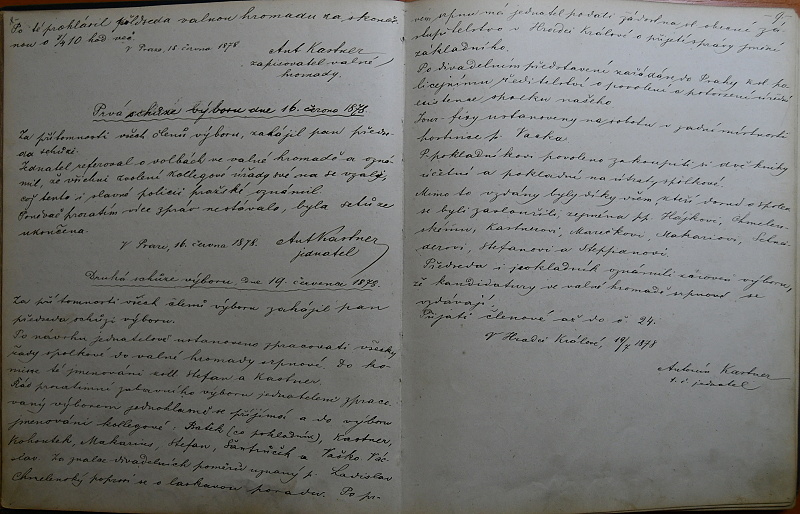 Po té prohlásil předseda valnou hromadu za skonče-
nou o 3/4 10 hod več.
V Praze, 15 června 1878
Ant Kastner
zapisovatel valné
hromady.
Prvá schůze výboru dne 16. června 1878.
Za přítomnosti všech členů výboru, zahájil pan předse-
da schůzi.
Jednatel referoval o volbách ve valné hromadě a ozná-
mil, že všichni zvolení kollegové úřady své na se vzali,
což tento i slavné policii pražské oznámil.
Poněvač prozatím více zpráv nestávalo, byla schůze
ukončena.
V Praze, 16. června 1878.
Ant Kastner
jednatel
Druhá schůze výboru dne 19. července 1878.
Za přítomnosti všech členů výboru zahájil pan
předseda schůzi výboru.
Po návrhu jednatelově ustanoveno zpracovati všecky
řády spolkové do valné hromady srpnové. Do ko-
misse té jmenováni koll. Stefan a Kastner.
Řád prozatimní zábavního výboru jednatelem zpraco-
vaný výborem jednohlasně se přijímá a do výboru
jmenováni kollegové: Batěk (co pokladník), Kastner,
Kohoutek, Makarius, Stefan, a Vaško Vác-
slav. Za znalce divadelních poměrů uznaný p. Ladislav
Chmelenský poprosí se o laskavou poradu. Po pr-
9.
vém srpnu má jednatel podati žádost na sl. obecné za-
stupitelstvo v Hradci Králové o přijetí správy jmění
základního.
Po divadelním představení zažádáno do Prahy k sl. po-
licejnímu ředitelství o povolení a potvrzení
existence spolku našeho.
ustanoveny na sobotu v zadní místnosti
hostince p. Vaška.
P. pokladníkovi povoleno zakoupiti si dvě knihy
účetní a pokladní na útraty spolkové.
Mimo to vzdány byly díky všem, kteří dosud o spolek
se byli zasloužili, zejména pp. Hájkovi, Chmelen-
skému, Kastnerovi, Marečkovi, Makariovi, Schnei-
derovi, Stefanovi a Steppanovi.
Předseda i pokladník oznámili zároveň výboru,
že kandidatury ve valné hromadě srpnové se
vzdávají.
Přijati členové až do č 24.
V Hradci Králové, 19/7 1878
Antonín Kastner
t. č. jednatel